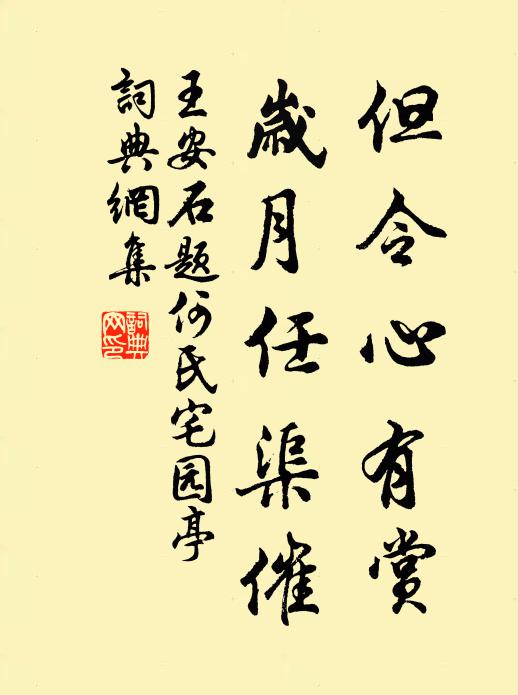 但令心有赏
歲月任渠催
王安石题何氏宅园亭
詞典網集
詞典網印